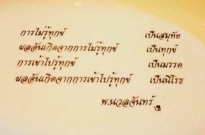 การไม่รู้ทุกข์ เป็นสมุทัย
ผลอันเกิดจากการไม่รู้ทุกข์ เป็นทุกข์
การเข้าไปรู้ทุกข์ เป็นมรรค
ผลอันเกิดจากการเข้าไปรู้ทุกข์ เป็นนิโรธ
พ.นวลจันทร์